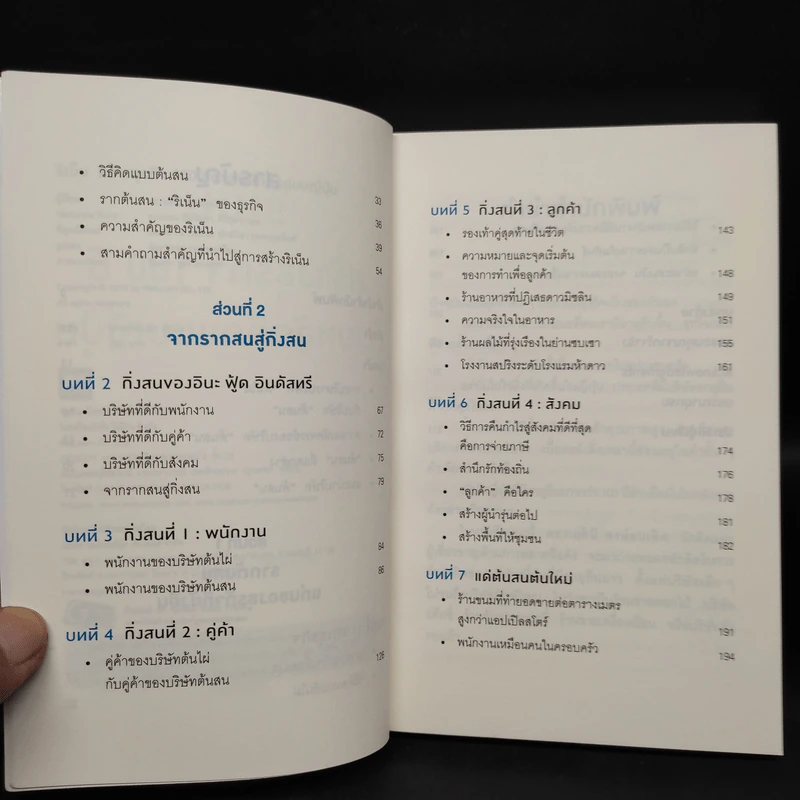 • วิธีคิดแบบต้นสน 33
• รากต้นสน : “ริเน็น” ของธุรกิจ 36
• ความสำคัญของริเน็น 39
• สามคำถามสำคัญที่นำไปสู่การสร้างริเน็น 54
ส่วนที่ 2
จากรากสนสู่กิ่งสน
บทที่ 2 กิ่งสนของอินะ ฟู้ด อินดัสทรี
• บริษัทที่ดีกับพนักงาน 67
• บริษัทที่ดีกับคู่ค้า 72
• บริษัทที่ดีกับสังคม 75
• จากรากสนสู่กิ่งสน 79
บทที่ 3 กิ่งสนที่ 1 : พนักงาน
• พนักงานของบริษัทต้นไผ่ 84
• พนักงานของบริษัทต้นสน 86
บทที่ 4 กิ่งสนที่ 2 : คู่ค้า
• คู่ค้าของบริษัทต้นไผ่ 126
กับคู่ค้าของบริษัทต้นสน
บทที่ 5 กิ่งสนที่ 3 : ลูกค้า
• รองเท้าคู่สุดท้ายในชีวิต 143
• ความหมายและจุดเริ่มต้น
ของการทำเพื่อลูกค้า 148
• ร้านอาหารที่ปฏิเสธดาวมิชลิน 149
• ความจริงใจในอาหาร 151
• ร้านผลไม้ที่รุ่งเรืองในย่านซบเซา 155
• โรงงานสปริงระดับโรงแรมห้าดาว 161
บทที่ 6 กิ่งสนที่ 4 : สังคม
• วิธีการคืนกำไรสู่สังคมที่ดีที่สุด
คือการจ่ายภาษี 174
• สำนึกรักท้องถิ่น 176
• “ลูกค้า” คือใคร 178
• สร้างผู้นำรุ่นต่อไป 181
• สร้างพื้นที่ให้ชุมชน 182
บทที่ 7 แด่ต้นสนต้นใหม่
• ร้านขนมที่ทำยอดขายต่อตารางเมตร
สูงกว่าแอปเปิลสโตร์ 191
• พนักงานเหมือนคนในครอบครัว 194